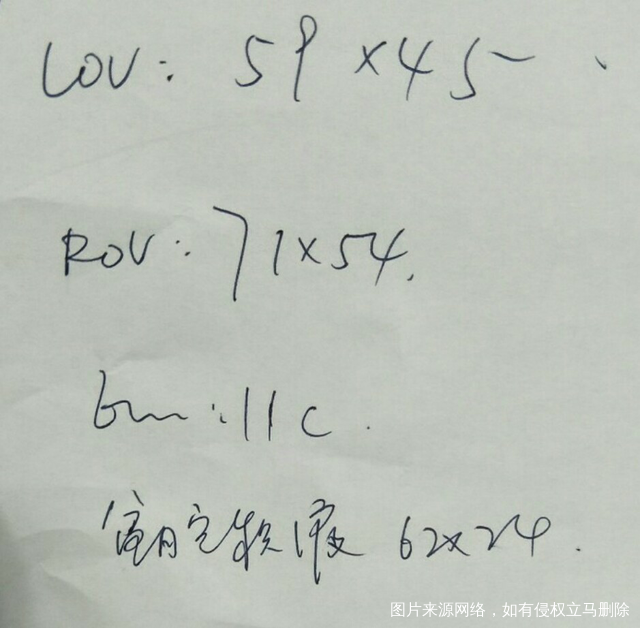 LOV: 59×45
ROV: 71×54.
Em: 11c.
盆腔积液 62×24.
图片来源网络，如有侵权立马删除